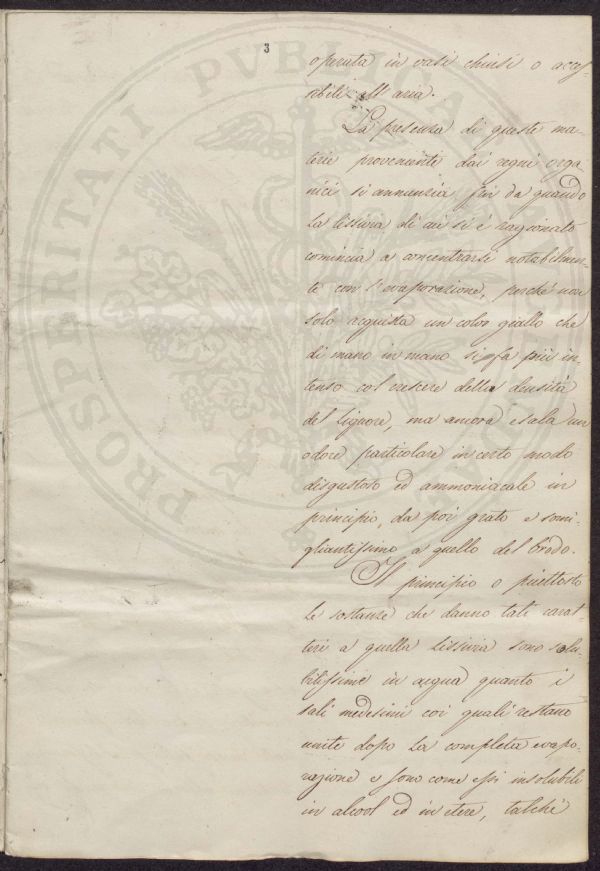 3
operata in vasi chiusi o acces-
sibili all'aria.
La presenza di queste ma-
terie provenienti dai regni orga-
nici si annunzia fin da quando
la lissivia di cui si è ragionato
comincia a concentrarsi notabilmen-
te con l'evaporazione, perché non
solo acquista un color giallo che
di mano in mano si fa più in-
tenso col crescere della densità
del liquore, ma ancora esala un
odore particolare in certo modo
disgustoso ed ammoniacale in
principio, da poi grato e somi-
gliantissimo a quello del brodo.
Il principio o piuttosto
le sostanze che danno tali carat-
teri a quella lissivia sono solu-
bilissime in acqua quanto i
sali medesimi coi quali restano
unite dopo la completa evapo-
razione e sono come essi insolubili
in alcool ed in etere, talché
PROSPERITATI PVBLICAE